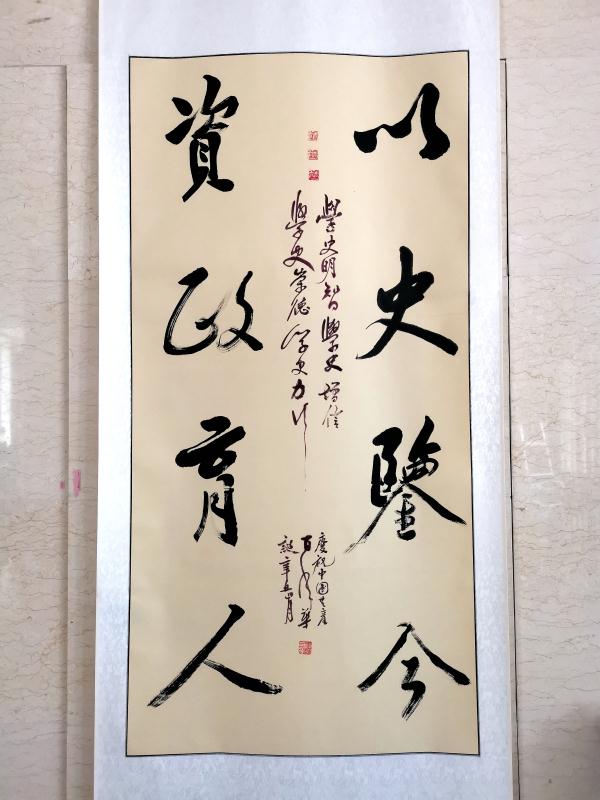 以史鑒今
學史明智學史增信
學史崇德學史力行
慶祝中國共產
百年華
誕辛丑月
資政育人